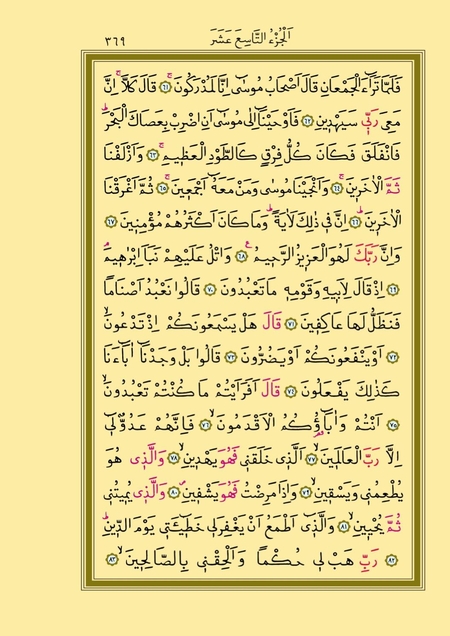 اَلْجُزْءُ التَّاسِعَ عَشَرَ
٣٦٩
فَلَمَّا تَرَٓاءَ الْجَمْعَانِ قَالَ اَصْحَابُ مُوسٰٓى اِنَّا لَمُدْرَكُونَۚ ﴿٦١﴾ قَالَ كَلَّاۚ اِنَّ
مَعِيَ رَبّ۪ي سَيَهْد۪ينِ ﴿٦٢﴾ فَاَوْحَيْنَٓا اِلٰى مُوسٰٓى اَنِ اضْرِبْ بِعَصَاكَ الْبَحْرَۜ
فَانْفَلَقَ فَكَانَ كُلُّ فِرْقٍ كَالطَّوْدِ الْعَظ۪يمِۚ ﴿٦٣﴾ وَاَزْلَفْنَا
ثَمَّ الْاٰخَر۪ينَۚ ﴿٦٤﴾ وَاَنْجَيْنَا مُوسٰى وَمَنْ مَعَهُٓ اَجْمَع۪ينَۚ ﴿٦٥﴾ ثُمَّ اَغْرَقْنَا
الْاٰخَر۪ينَۜ ﴿٦٦﴾ اِنَّ ف۪ي ذٰلِكَ لَاٰيَةًۜ وَمَا كَانَ اَكْثَرُهُمْ مُؤْمِن۪ينَ ﴿٦٧﴾
وَاِنَّ رَبَّكَ لَهُوَ الْعَز۪يزُ الرَّح۪يمُ۟ ﴿٦٨﴾ وَاتْلُ عَلَيْهِمْ نَبَاَ اِبْرٰه۪يمَۢ
﴿٦٩﴾ اِذْ قَالَ لِاَب۪يهِ وَقَوْمِه۪ مَا تَعْبُدُونَ ﴿٧٠﴾ قَالُوا نَعْبُدُ اَصْنَامًا
فَنَظَلُّ لَهَا عَاكِف۪ينَ ﴿٧١﴾ قَالَ هَلْ يَسْمَعُونَكُمْ اِذْ تَدْعُونَۙ
﴿٧٢﴾ اَوْ يَنْفَعُونَكُمْ اَوْ يَضُرُّونَ ﴿٧٣﴾ قَالُوا بَلْ وَجَدْنَٓا اٰبَٓاءَنَا
كَذٰلِكَ يَفْعَلُونَ ﴿٧٤﴾ قَالَ اَفَرَاَيْتُمْ مَا كُنْتُمْ تَعْبُدُونَۙ
﴿٧٥﴾ اَنْتُمْ وَاٰبَٓاؤُ۬كُمُ الْاَقْدَمُونَۘ ﴿٧٦﴾ فَاِنَّهُمْ عَدُوٌّ ل۪ٓي
اِلَّا رَبَّ الْعَالَم۪ينَۙ ﴿٧٧﴾ اَلَّذ۪ي خَلَقَن۪ي فَهُوَ يَهْد۪ينِۙ ﴿٧٨﴾ وَالَّذ۪ي هُوَ
يُطْعِمُن۪ي وَيَسْق۪ينِۙ ﴿٧٩﴾ وَاِذَا مَرِضْتُ فَهُوَ يَشْف۪ينِۖ ﴿٨٠﴾ وَالَّذ۪ي يُم۪يتُن۪ي
ثُمَّ يُحْي۪ينِۙ ﴿٨١﴾ وَالَّذ۪ٓي اَطْمَعُ اَنْ يَغْفِرَ ل۪ي خَط۪ٓيـَٔت۪ي يَوْمَ الدّ۪ينِۜ
﴿٨٢﴾ رَبِّ هَبْ ل۪ي حُكْمًا وَاَلْحِقْن۪ي بِالصَّالِح۪ينَۙ ﴿٨٣﴾